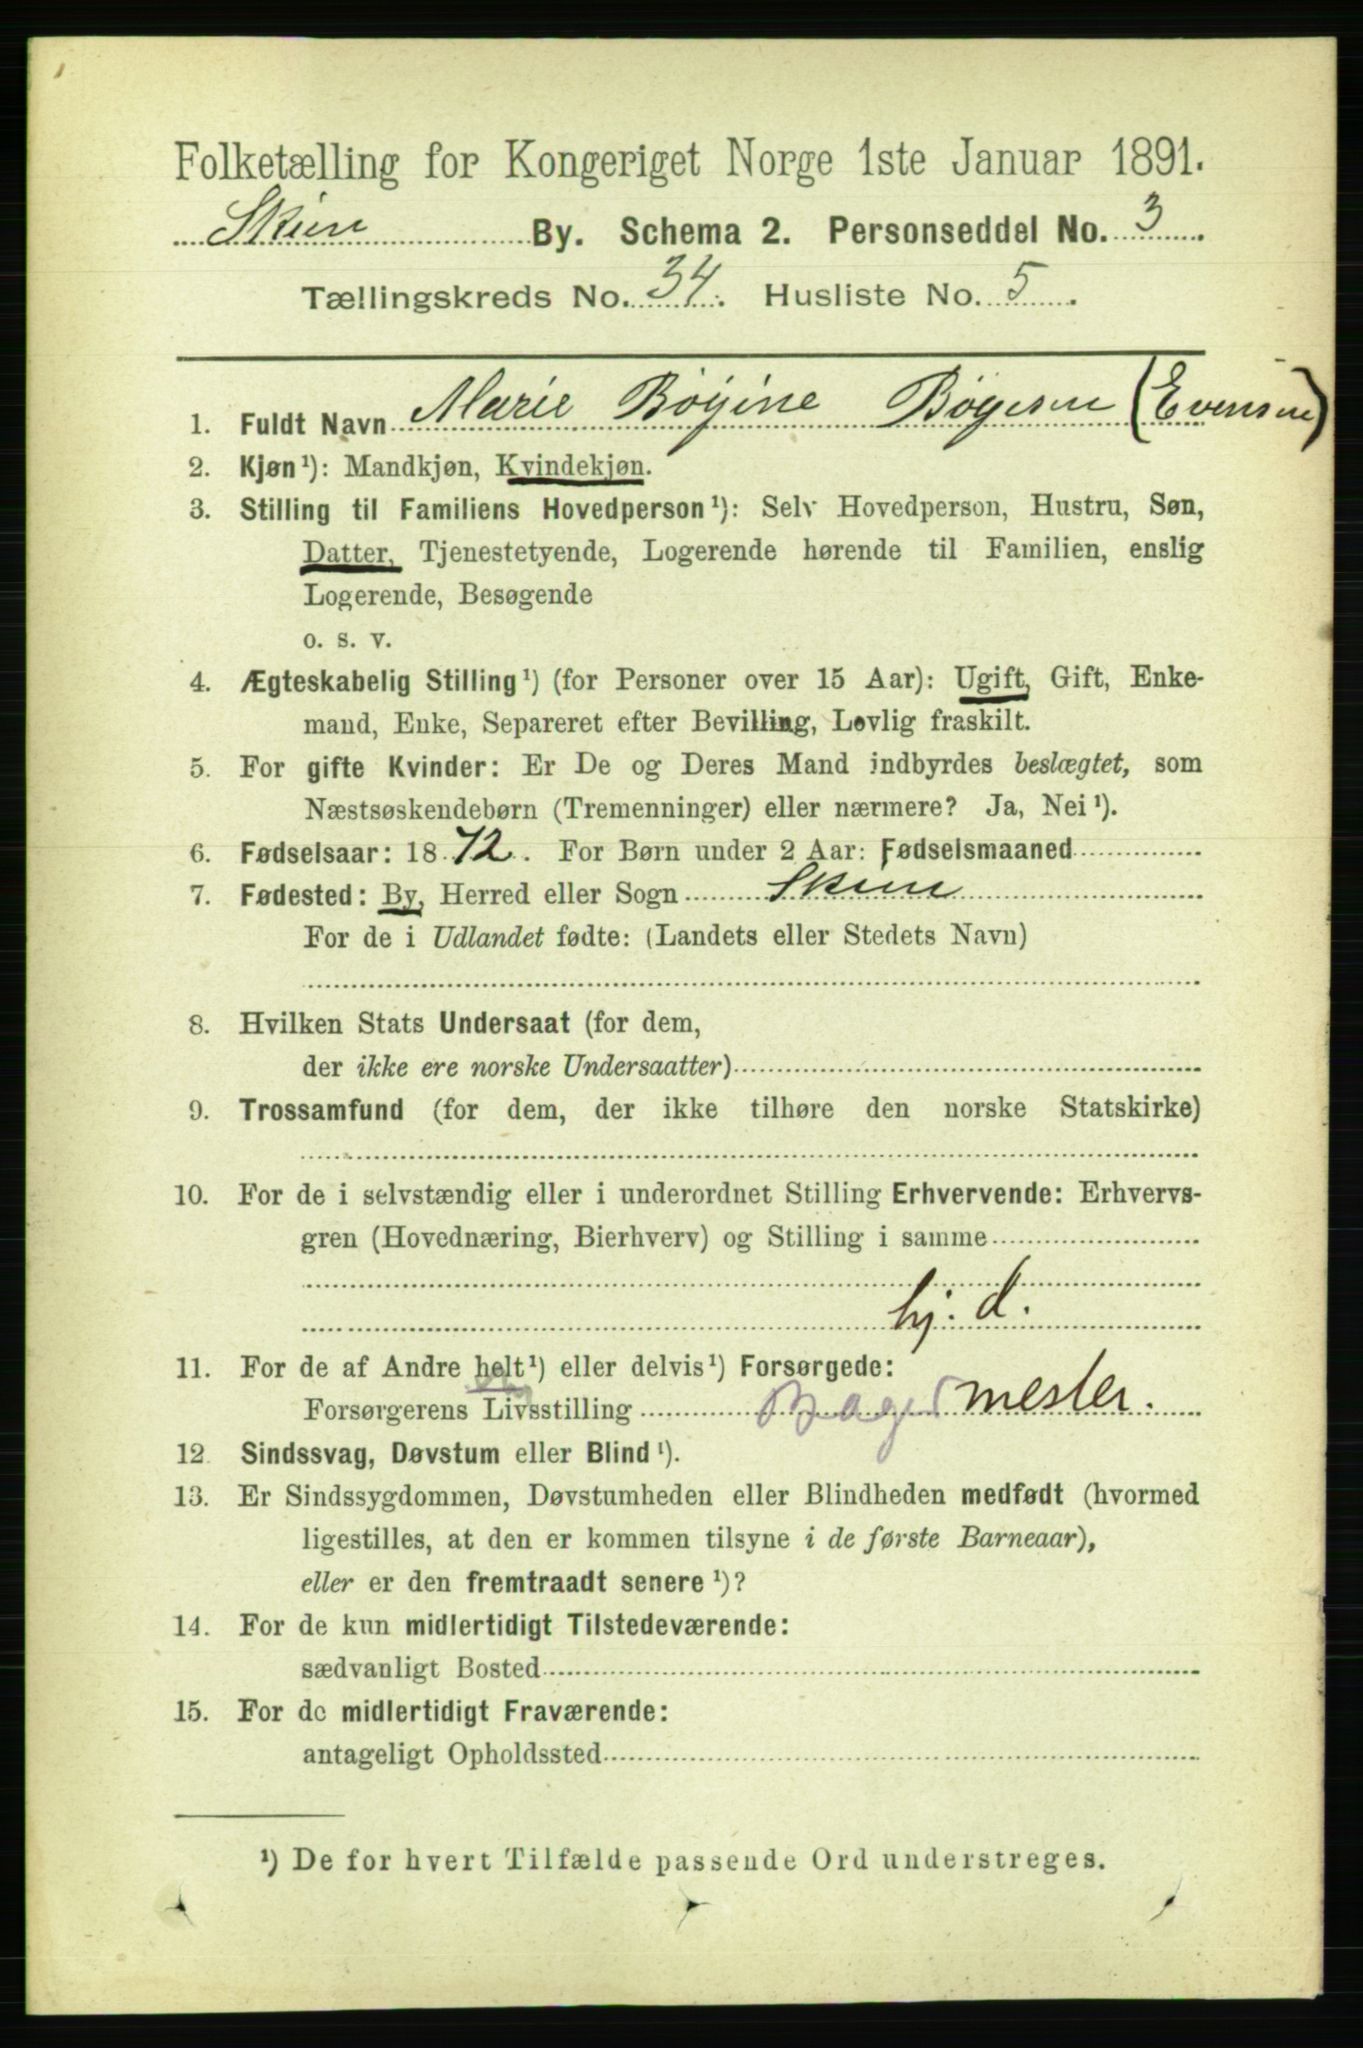 Folketælling for Kongeriget Norge 1ste Januar 1891.
Skien By. Schema 2. Personseddel No. 3.
Tællingskreds No. 34. Husliste No. 5.
1. Fuldt Navn Marie Böyine Bøyesen (Evensen)
2. Kjøn ¹): Mandkjøn, Kvindekjøn.
3. Stilling til Familiens Hovedperson ¹): Selv Hovedperson, Hustru, Søn,
Datter, Tjenestetyende, Logerende hørende til Familien, enslig
Logerende, Besøgende
o. s. v.
4. Ægteskabelig Stilling ¹) (for Personer over 15 Aar): Ugift, Gift, Enke-
mand, Enke, Separeret efter Bevilling, Lovlig fraskilt.
5. For gifte Kvinder: Er De og Deres Mand indbyrdes beslægtet, som
Næstsøskendebørn (Tremenninger) eller nærmere? Ja, Nei ¹).
6. Fødselsaar: 1872. For Børn under 2 Aar: Fødselsmaaned
7. Fødested: By, Herred eller Sogn Skien
For de i Udlandet fødte: (Landets eller Stedets Navn)
8. Hvilken Stats Undersaat (for dem,
der ikke ere norske Undersaatter)
9. Trossamfund (for dem, der ikke tilhøre den norske Statskirke)
10. For de i selvstændig eller i underordnet Stilling Erhvervende: Erhvervs-
gren (Hovednæring, Bierhverv) og Stilling i samme
hj. d.
11. For de af Andre helt ¹) eller delvis ¹) Forsørgede:
Forsørgerens Livsstilling Bagermester.
12. Sindssvag, Døvstum eller Blind ¹).
13. Er Sindssygdommen, Døvstumheden eller Blindheden medfødt (hvormed
ligestilles, at den er kommen tilsyne i de første Barneaar),
eller er den fremtraadt senere ¹)?
14. For de kun midlertidigt Tilstedeværende:
sædvanligt Bosted
15. For de midlertidigt Fraværende:
antageligt Opholdssted
¹) De for hvert Tilfælde passende Ord understreges.